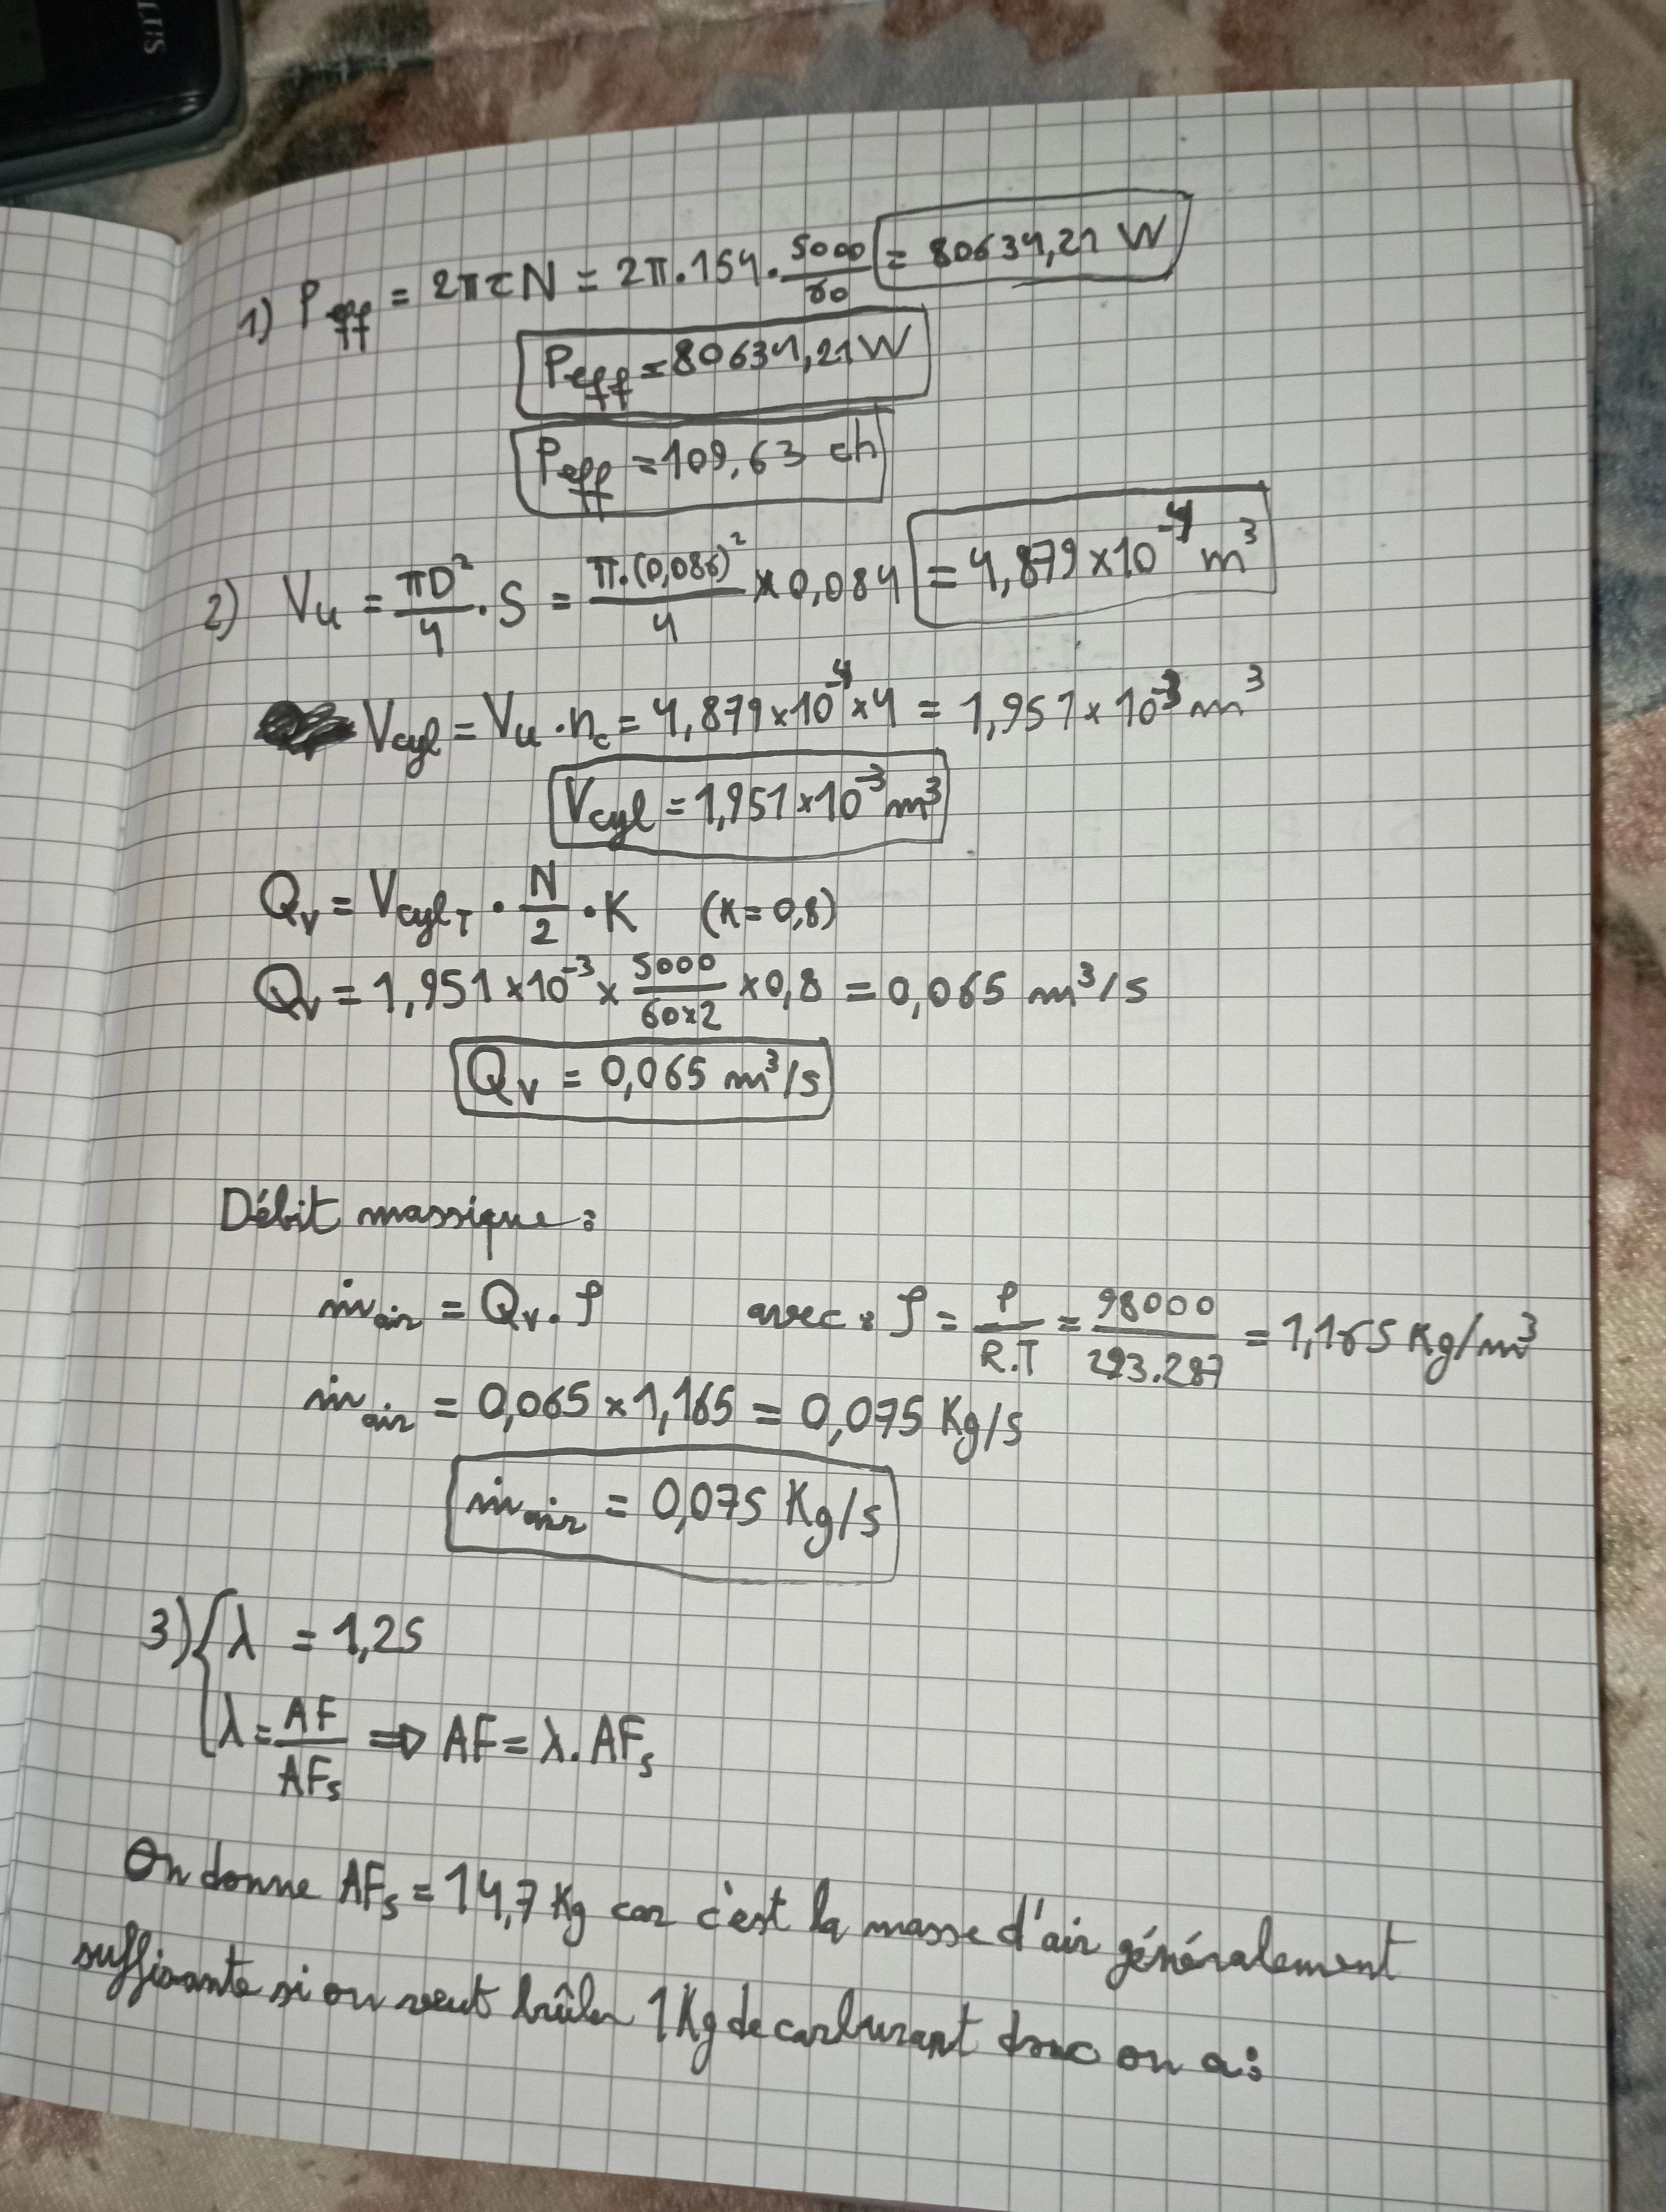 LUS
1) Peff = 2πτN = 2π.154.5000/60 = 80634,21 W
Peff = 80634,21 W
Peff = 109,63 ch
2) Vu = πD²/4 . S = π.(0,086)²/4 × 0,084 = 4,879×10⁻⁴ m³
Vcyl = Vu . nc = 4,879×10⁻⁴ × 4 = 1,951×10⁻³ m³
Vcyl = 1,951×10⁻³ m³
Qv = VcylT . N/2 . K (K = 0,8)
Qv = 1,951×10⁻³ × 5000/60×2 × 0,8 = 0,065 m³/s
Qv = 0,065 m³/s
Débit massique :
ṁair = Qv . ρ avec : ρ = P/R.T = 98000/293.287 = 1,165 Kg/m³
ṁair = 0,065 × 1,165 = 0,075 Kg/s
ṁair = 0,075 Kg/s
3) { λ = 1,25
λ = AF/AFs ⇒ AF = λ . AFs
On donne AFs = 14,7 Kg car c'est la masse d'air généralement
suffisante si on veut brûler 1 Kg de carburant donc on a :